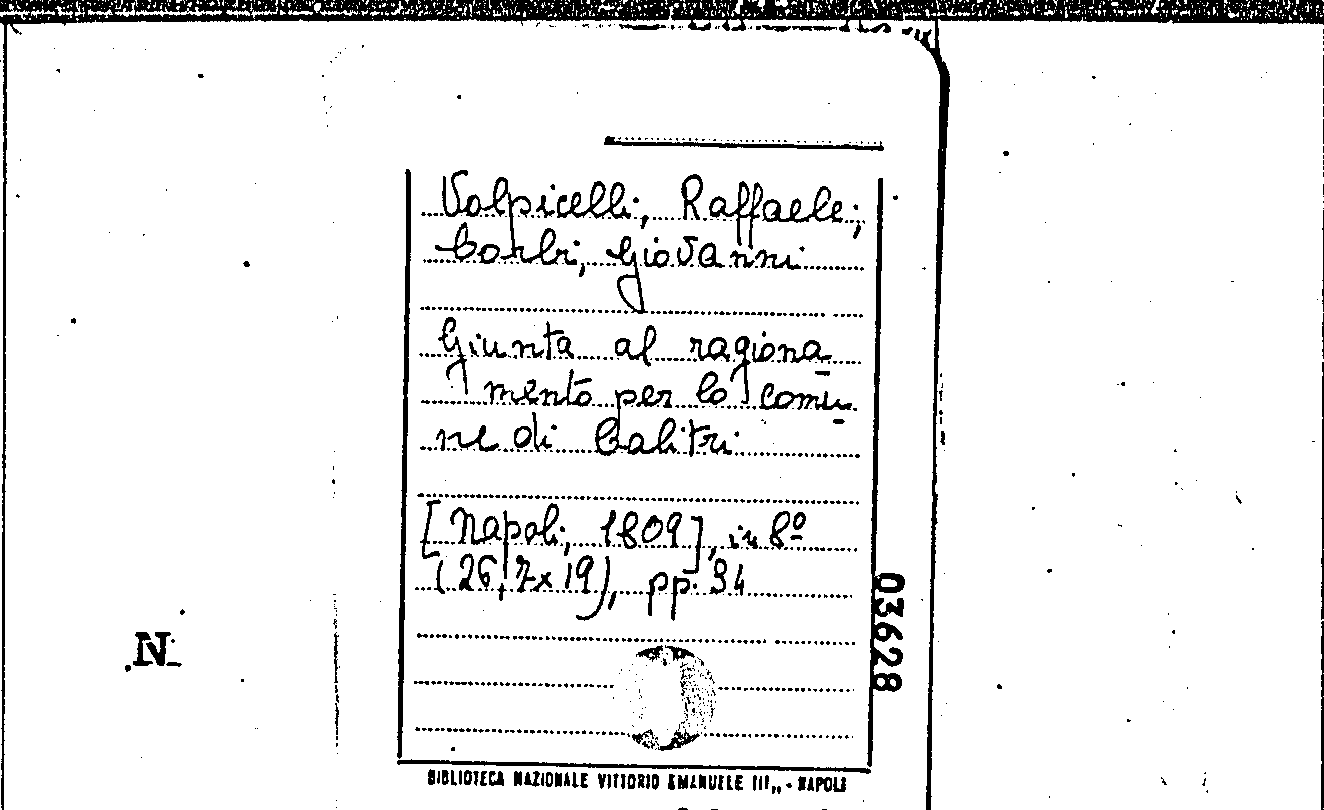 Volpicelli, Raffaele;
Corbi, Giovanni
Giunta al ragiona-
mento per lo comu-
ne di Calitri
[Napoli, 1809], in 8º
(26,7x19), pp. 34
03628
N.
BIBLIOTECA NAZIONALE VITTORIO EMANUELE III,, - NAPOLI